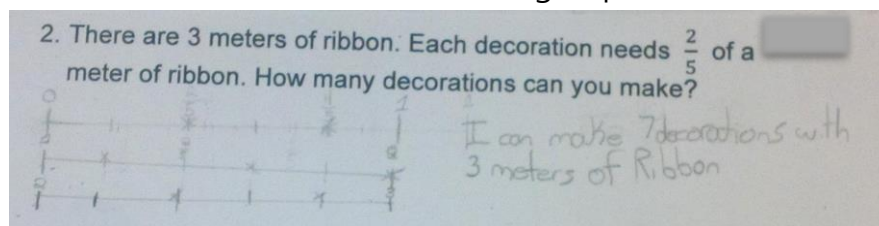 2. There are 3 meters of ribbon. Each decoration needs 2/5 of a
meter of ribbon. How many decorations can you make?
0 1
I can make 7 decorations with
3 meters of Ribbon